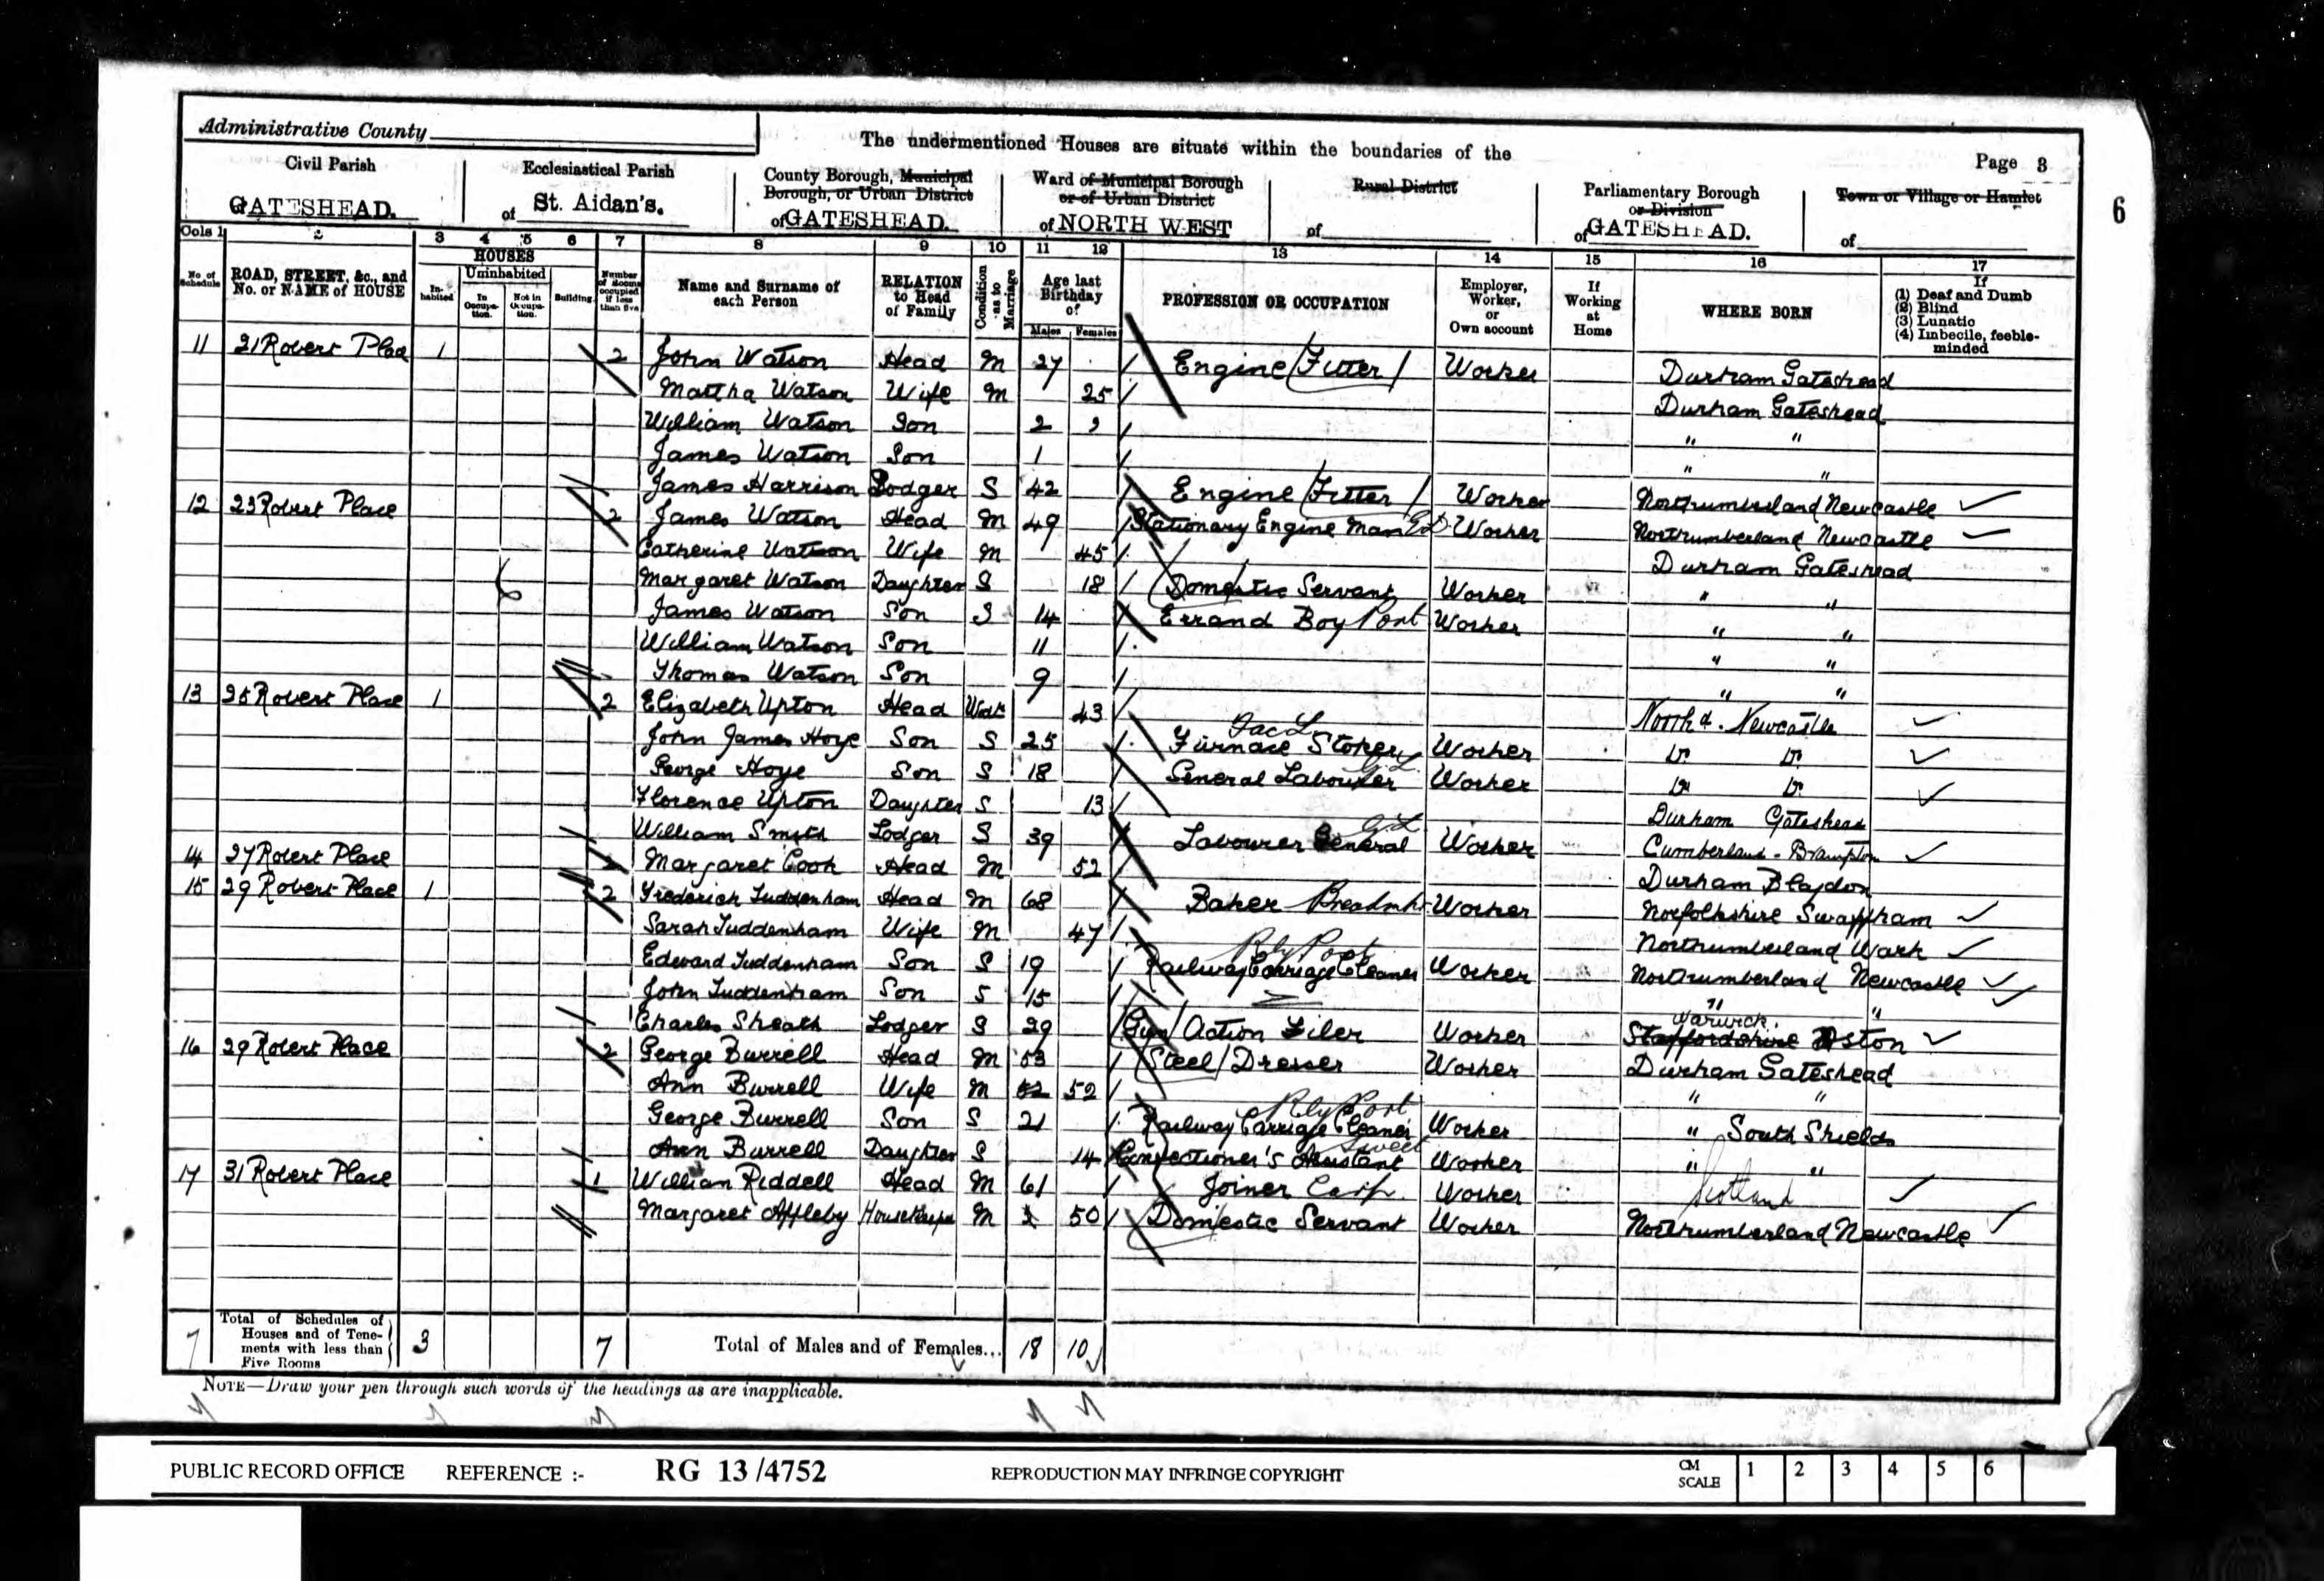 Administrative County
The undermentioned Houses are situate within the boundaries of the
Page 3
6
Civil Parish
GATESHEAD.
Ecclesiastical Parish
of St. Aidan's.
County Borough, Municipal
Borough, or Urban District
of GATESHEAD.
Ward of Municipal Borough
or of Urban District
of NORTH WEST
Rural District
of
Parliamentary Borough
or Division
of GATESHEAD.
Town or Village or Hamlet
of
Cols 1 2 3 4 5 6 7 8 9 10 11 12 13 14 15 16 17
No. of Schedule
ROAD, STREET, &c., and
No. or NAME of HOUSE
HOUSES
In-habited
Uninhabited
In Occupa-tion.
Not in Occupa-tion.
Building
Number of Rooms occupied if less than five
Name and Surname of
each Person
RELATION
to Head
of Family
Condition as to Marriage
Age last
Birthday
of
Males Females
PROFESSION OR OCCUPATION
Employer,
Worker,
or
Own account
If
Working
at
Home
WHERE BORN
If
(1) Deaf and Dumb
(2) Blind
(3) Lunatic
(4) Imbecile, feeble-
minded
11 21 Robert Place 1 2 John Watson Head M 27 Engine Fitter Worker Durham Gateshead
Martha Watson Wife M 25 Durham Gateshead
William Watson Son 2 " "
James Watson Son 1 " "
James Harrison Lodger S 42 Engine Fitter Worker Northumberland Newcastle
12 23 Robert Place 2 James Watson Head M 49 Stationary Engine Man Worker Northumberland Newcastle
Catherine Watson Wife M 45 Durham Gateshead
Margaret Watson Daughter S 18 Domestic Servant Worker " "
James Watson Son S 14 Errand Boy Port Worker " "
William Watson Son 11 " "
Thomas Watson Son 9 " "
13 25 Robert Place 1 2 Elizabeth Upton Head Wid 43 North'd. Newcastle
John James Hoye Son S 25 Furnace Stoker Worker Do Do
George Hoye Son S 18 General Labourer Worker Do Do
Florence Upton Daughter S 13 Durham Gateshead
William Smith Lodger S 39 Labourer General Worker Cumberland - Brampton
14 27 Robert Place Margaret Cook Head M 52 Durham Blaydon
15 29 Robert Place 1 2 Frederick Tuddenham Head M 68 Baker Worker Norfolkshire Swaffham
Sarah Tuddenham Wife M 47 Northumberland Wark
Rly Port
Edward Tuddenham Son S 19 Railway Carriage Cleaner Worker Northumberland Newcastle
John Tuddenham Son S 15 " "
Warwick.
Charles Sheath Lodger S 29 Gun Action Filer Worker Staffordshire Aston
16 29 Robert Place 2 George Burrell Head M 53 Steel Dresser Worker Durham Gateshead
Ann Burrell Wife M 52 52 " "
Rly Port
George Burrell Son S 21 Railway Carriage Cleaner Worker " South Shields
Sweet
Ann Burrell Daughter S 14 Confectioner's Assistant Worker " "
17 31 Robert Place 1 William Riddell Head M 61 Joiner Carp. Worker Scotland
Margaret Appleby Housekeeper M 50 Domestic Servant Worker Northumberland Newcastle
7 Total of Schedules of
Houses and of Tene-
ments with less than
Five Rooms
3 7 Total of Males and of Females... 18 10
NOTE—Draw your pen through such words of the headings as are inapplicable.
PUBLIC RECORD OFFICE REFERENCE :- RG 13/4752 REPRODUCTION MAY INFRINGE COPYRIGHT CM SCALE 1 2 3 4 5 6